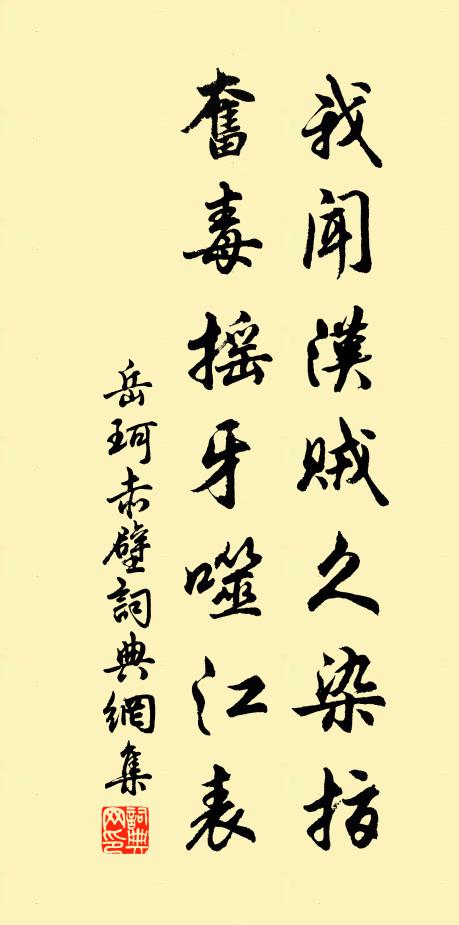 我聞漢賊久染指
奮毒摇牙噬江表
岳珂赤壁詞典網集
詞典網印